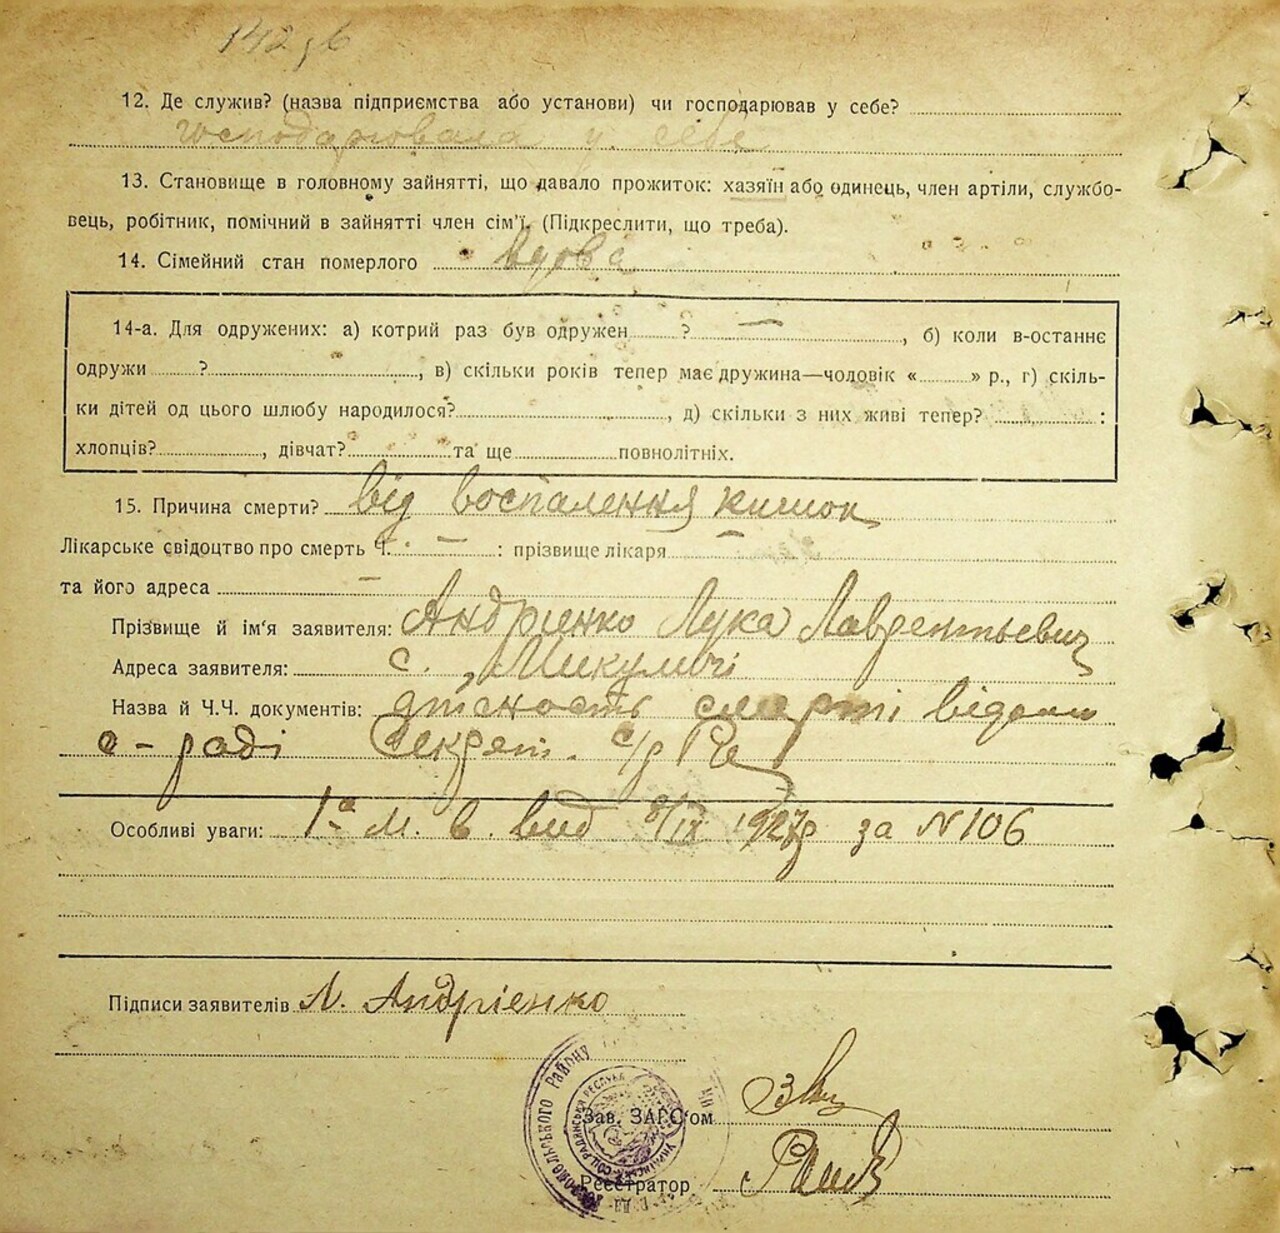 142 зв
12. Де служив? (назва підприємства або установи) чи господарював у себе?
господарювала у себе
13. Становище в головному зайнятті, що давало прожиток: хазяїн або одинець, член артіли, службо-
вець, робітник, помічний в зайнятті член сім'ї. (Підкреслити, що треба).
14. Сімейний стан померлого вдова
14-а. Для одружених: а) котрий раз був одружен ? —, б) коли в-останнє
одружи ? , в) скільки років тепер має дружина—чоловік « » р., г) скіль-
ки дітей од цього шлюбу народилося? , д) скільки з них живі тепер? :
хлопців? , дівчат? та ще повнолітніх.
15. Причина смерти? від воспалення кишок
Лікарське свідоцтво про смерть Ч. — : прізвище лікаря —
та його адреса —
Прізвище й ім'я заявителя: Андрієнко Лука Лаврентьевич
Адреса заявителя: с. Микуличі
Назва й Ч.Ч. документів: смерті відома
с-раді Секрет. с/р
Особливі уваги: 1а м. в. вид 8/IX 1927р за №106
Підписи заявителів Л. Андрієнко
РАЙОНУ
Зав. ЗАГС'ом
УКРАЇНСЬКА СОЦ. РАДЯНСЬКА РЕСПУБ
Реєстратор